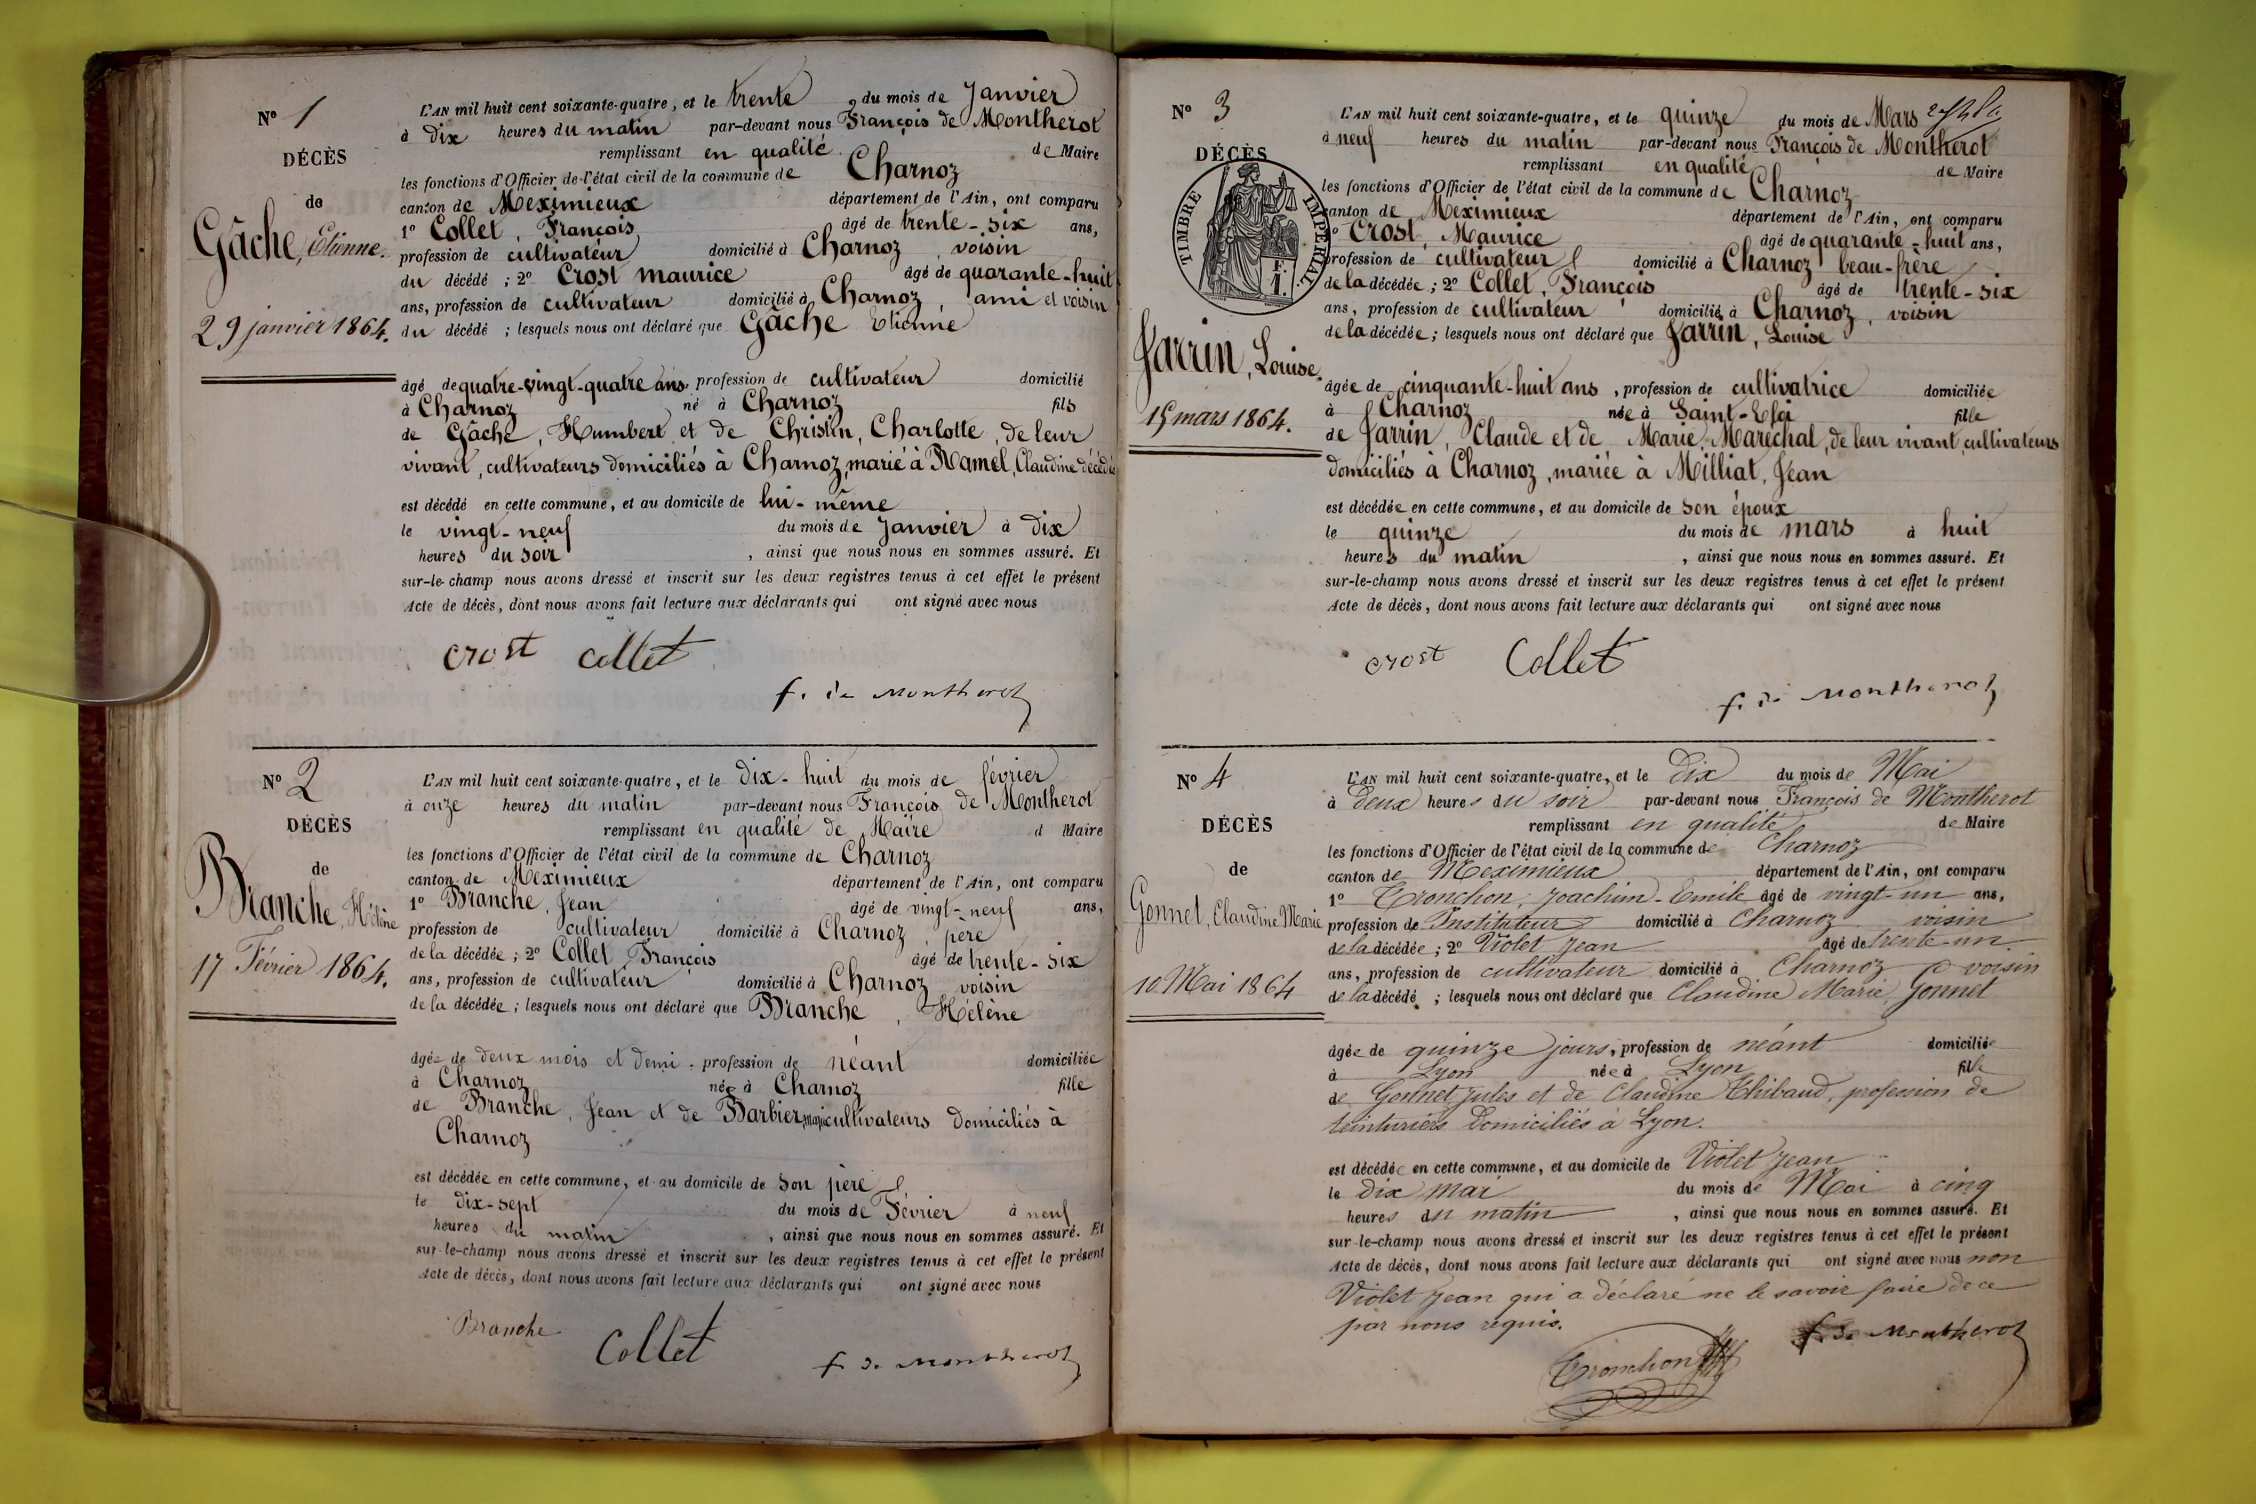 N° 1
DÉCÈS
de
Gâche, Etienne.
29 janvier 1864.
L'AN mil huit cent soixante-quatre, et le trente du mois de Janvier
à dix heures du matin par-devant nous François de Montherot
remplissant en qualité de Maire
les fonctions d'Officier de l'état civil de la commune de Charnoz
canton de Meximieux département de l'Ain, ont comparu
1° Collet, François âgé de trente-six ans,
profession de cultivateur domicilié à Charnoz, voisin
du décédé ; 2° Crost maurice âgé de quarante-huit
ans, profession de cultivateur domicilié à Charnoz, ami et voisin
du décédé ; lesquels nous ont déclaré que Gâche Etienne
âgé de quatre-vingt-quatre ans, profession de cultivateur domicilié
à Charnoz né à Charnoz fils
de Gâche, Humbert et de Christin, Charlotte, de leur
vivant, cultivateurs domiciliés à Charnoz, marié à Ramel, Claudine décédée
est décédé en cette commune, et au domicile de lui-même
le vingt-neuf du mois de Janvier à dix
heures du soir, ainsi que nous nous en sommes assuré. Et
sur-le-champ nous avons dressé et inscrit sur les deux registres tenus à cet effet le présent
Acte de décès, dont nous avons fait lecture aux déclarants qui ont signé avec nous
crost Collet
f. de Montherot
N° 2
DÉCÈS
de
Branche, Hélène
17 Février 1864.
L'AN mil huit cent soixante-quatre, et le dix-huit du mois de février
à onze heures du matin par-devant nous François de Montherot
remplissant en qualité de Maire d Maire
les fonctions d'Officier de l'état civil de la commune de Charnoz
canton de Meximieux département de l'Ain, ont comparu
1° Branche, Jean âgé de vingt-neuf ans,
profession de cultivateur domicilié à Charnoz, père
de la décédée ; 2° Collet François âgé de trente-six
ans, profession de cultivateur domicilié à Charnoz voisin
de la décédée ; lesquels nous ont déclaré que Branche, Hélène
âgée de deux mois et demi, profession de néant domiciliée
à Charnoz née à Charnoz fille
de Branche, Jean et de Barbier, cultivateurs domiciliés à
Charnoz
est décédée en cette commune, et au domicile de son père
le dix-sept du mois de Février à neuf
heures du matin, ainsi que nous nous en sommes assuré. Et
sur-le-champ nous avons dressé et inscrit sur les deux registres tenus à cet effet le présent
Acte de décès, dont nous avons fait lecture aux déclarants qui ont signé avec nous
Branche Collet f. de Montherot
N° 3
DÉCÈS
TIMBRE IMPÉRIAL
Jarrin, Louise.
15 mars 1864.
L'AN mil huit cent soixante-quatre, et le quinze du mois de Mars
à neuf heures du matin par-devant nous François de Montherot
remplissant en qualité de Maire
les fonctions d'Officier de l'état civil de la commune de Charnoz
canton de Meximieux département de l'Ain, ont comparu
1° Crost, Maurice âgé de quarante-huit ans,
profession de cultivateur domicilié à Charnoz beau-frère
de la décédée ; 2° Collet, François âgé de trente-six
ans, profession de cultivateur domicilié à Charnoz, voisin
de la décédée ; lesquels nous ont déclaré que Jarrin, Louise
âgée de cinquante-huit ans, profession de cultivatrice domiciliée
à Charnoz née à Saint-Eloi fille
de Jarrin, Claude et de Marie Maréchal, de leur vivant, cultivateurs
domiciliés à Charnoz, mariée à Milliat, Jean
est décédée en cette commune, et au domicile de son époux
le quinze du mois de mars à huit
heures du matin, ainsi que nous nous en sommes assuré. Et
sur-le-champ nous avons dressé et inscrit sur les deux registres tenus à cet effet le présent
Acte de décès, dont nous avons fait lecture aux déclarants qui ont signé avec nous
crost Collet
f. de Montherot
N° 4
DÉCÈS
de
Gonnet, Claudine Marie
10 Mai 1864
L'AN mil huit cent soixante-quatre, et le Dix du mois de Mai
à Deux heures du soir par-devant nous François de Montherot
remplissant en qualité de Maire
les fonctions d'Officier de l'état civil de la commune de Charnoz
canton de Meximieux département de l'Ain, ont comparu
1° Tronchon, Joachim-Emile âgé de vingt-un ans,
profession de Instituteur domicilié à Charnoz voisin
de la décédée ; 2° Violet Jean âgé de trente-un
ans, profession de cultivateur domicilié à Charnoz voisin
de la décédé ; lesquels nous ont déclaré que Claudine Marie Gonnet
âgée de quinze jours, profession de néant domiciliée
à Lyon née à Lyon fille
de Gonnet Jules et de Claudine Thibaud, profession de
teinturiers Domiciliés à Lyon.
est décédée en cette commune, et au domicile de Violet Jean
le dix mai du mois de Mai à cinq
heures du matin, ainsi que nous nous en sommes assuré. Et
sur-le-champ nous avons dressé et inscrit sur les deux registres tenus à cet effet le présent
Acte de décès, dont nous avons fait lecture aux déclarants qui ont signé avec nous non
Violet Jean qui a déclaré ne le savoir faire de ce
par nous requis.
Tronchon f. de Montherot